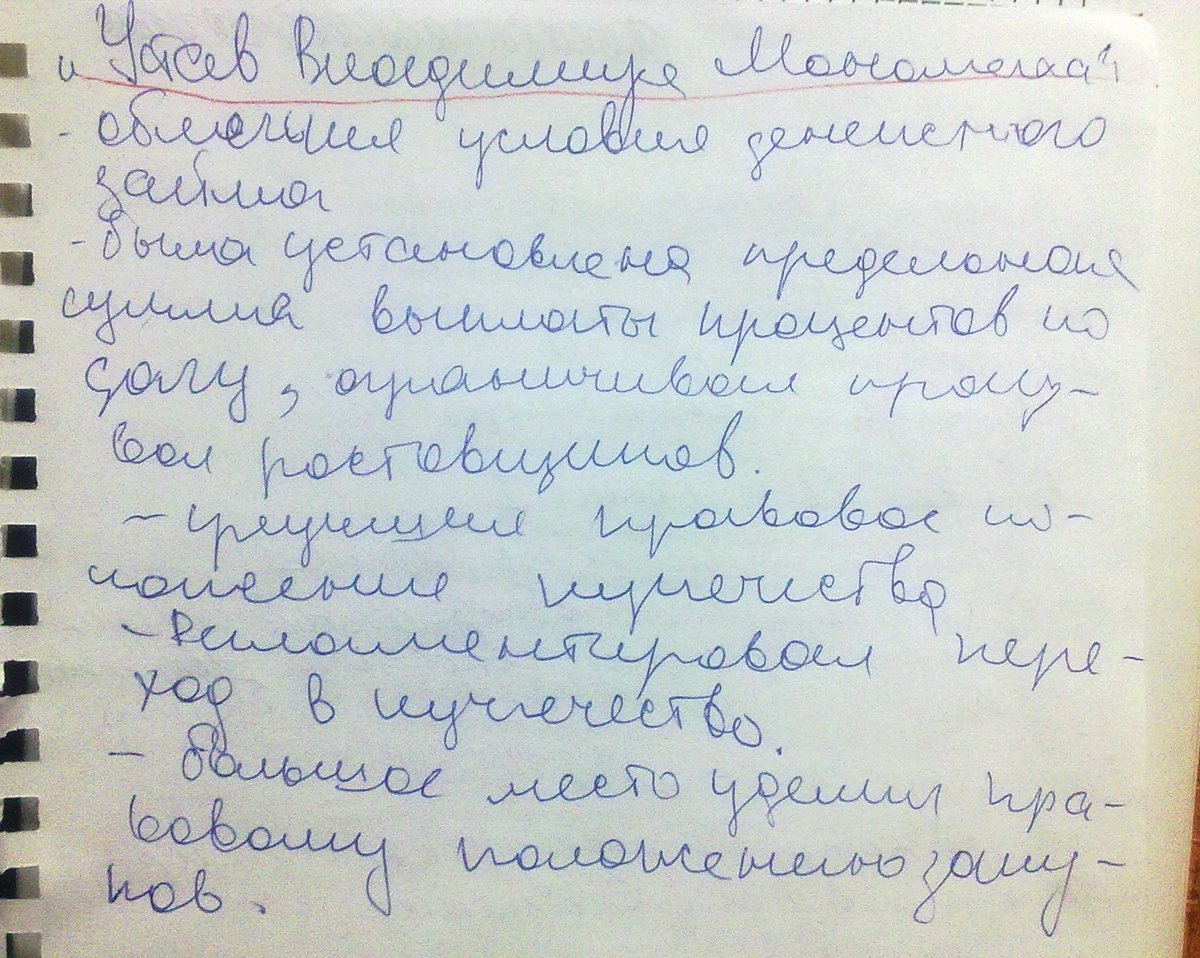 "Устав Владимира Мономаха"
- облегчил условия денежного
займа
- была установлена предельная
сумма выплаты процентов по
долгу, ограничивая произ-
вол ростовщиков.
- улучшил правовое по-
ложение купечества
- Регламентировал пере-
ход в купечество.
- большое место уделил пра-
вовому положению заку-
пов.